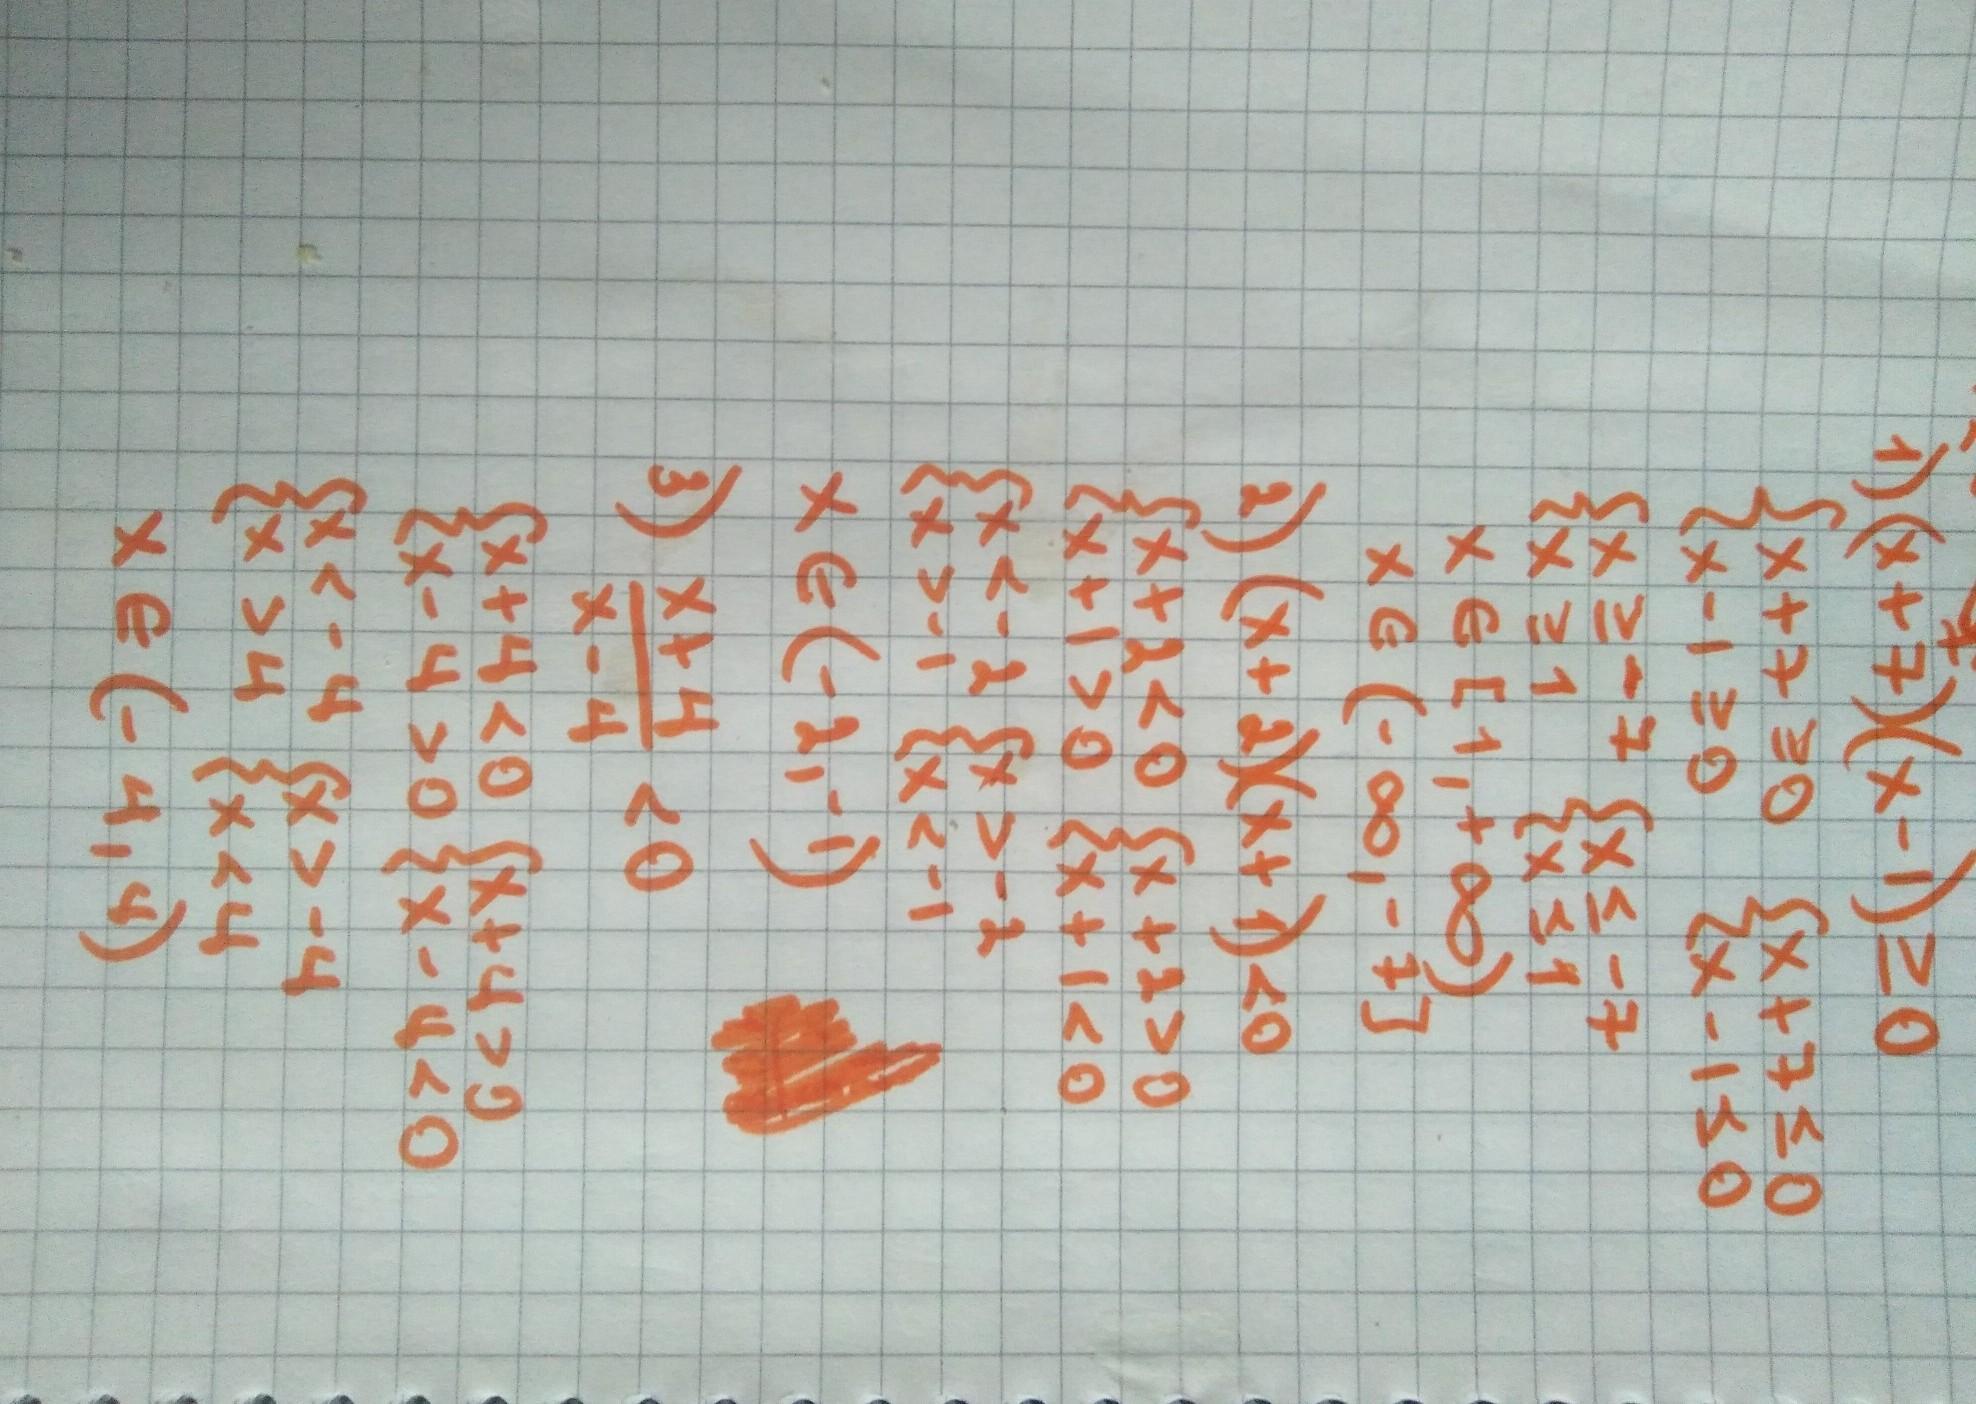 1) (x+7)(x-1) ≥ 0
{x+7 ≥ 0 {x+7 ≤ 0
{x-1 ≥ 0 {x-1 ≤ 0
{x ≥ -7 {x ≤ -7
{x ≥ 1 {x ≤ 1
x ∈ [1, +∞)
x ∈ (-∞, -7]
2) (x+2)(x+1) < 0
{x+2 < 0 {x+2 > 0
{x+1 > 0 {x+1 < 0
{x < -2 {x > -2
{x > -1 {x < -1
x ∈ (-2, -1)
3) x+4
x-4 < 0
{x+4 < 0 {x+4 > 0
{x-4 > 0 {x-4 < 0
{x < -4 {x > -4
{x > 4 {x < 4
x ∈ (-4, 4)